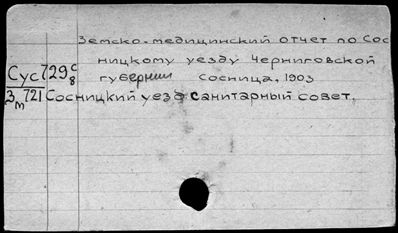 Земско-медицинский отчет по Сос
ницкому уезду Черниговской
Сус 729 с/8 губернии Сосница, 1903
З/м 721 Сосницкий уезд санитарный совет.